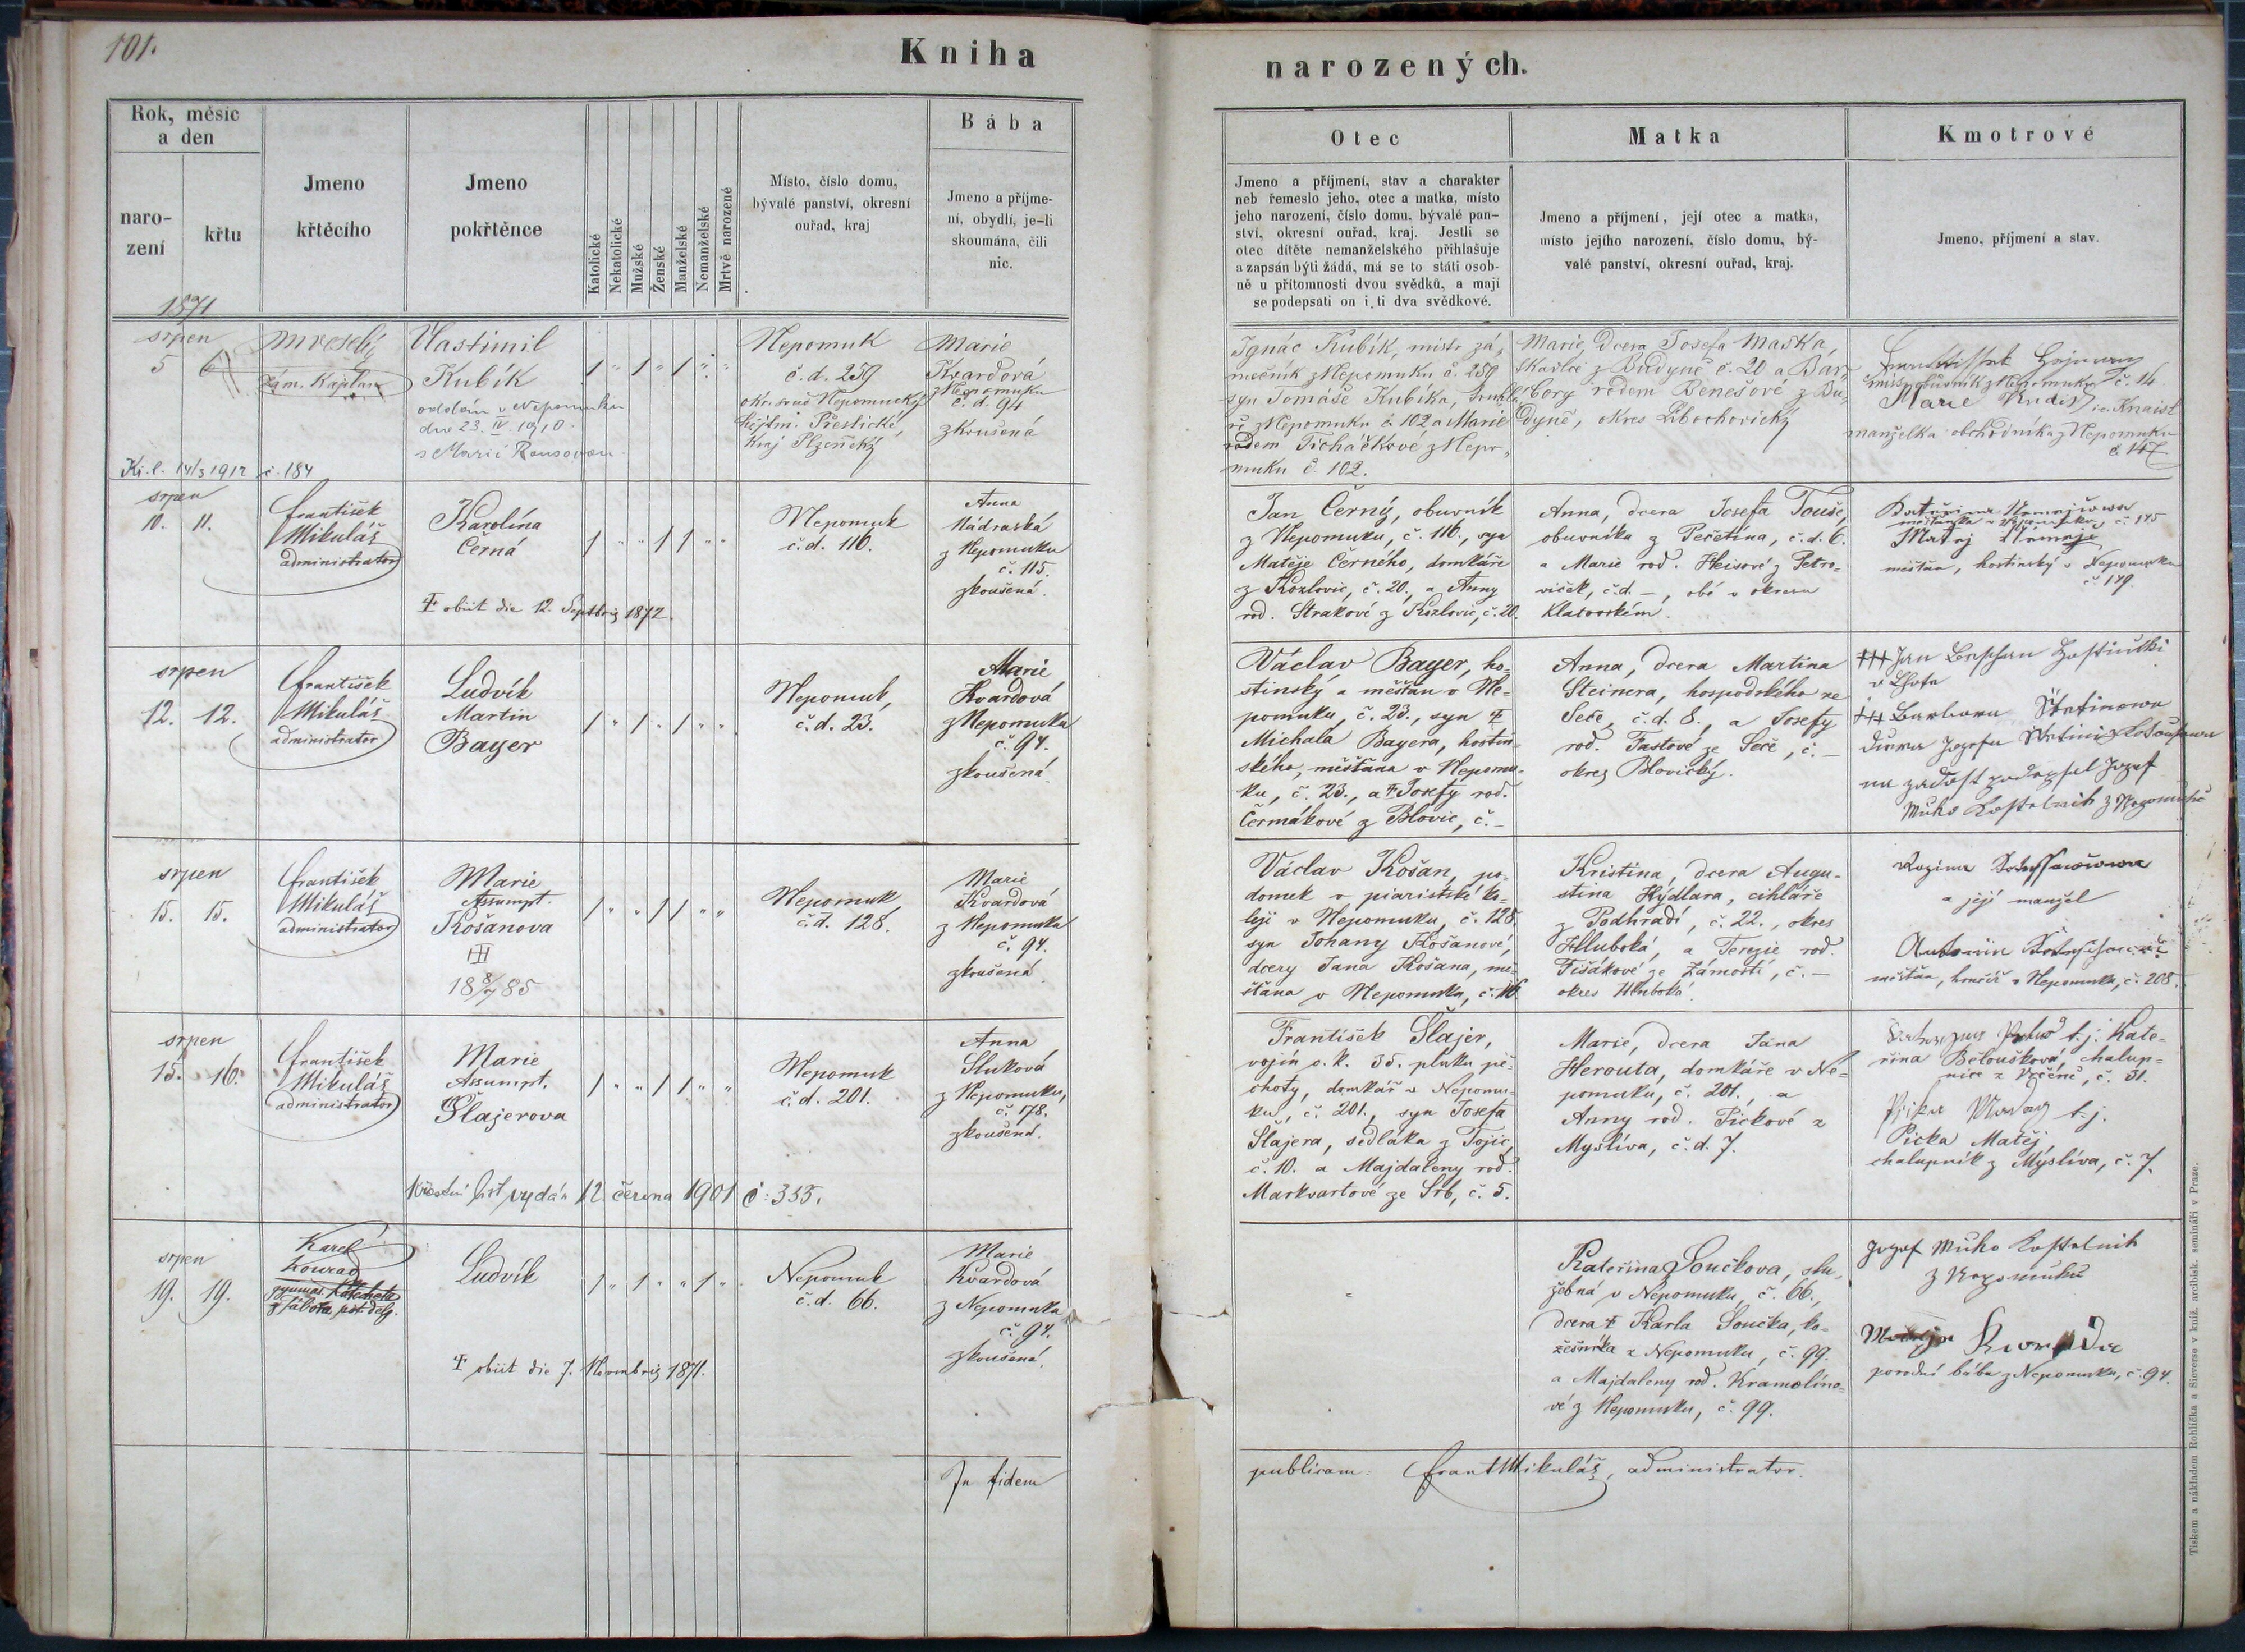 101.
Kniha
narozených.
Rok, měsíc
a den
naro-
zení
křtu
Jmeno
křtěcího
Jmeno
pokřtěnce
Katolické
Nekatolické
Mužské
Ženské
Manželské
Nemanželské
Mrtvě narozené
Místo, číslo domu,
bývalé panství, okresní
ouřad, kraj
Bába
Jmeno a příjme-
ní, obydlí, je-li
skoumána, čili
nic.
Otec
Jmeno a příjmení, stav a charakter
neb řemeslo jeho, otec a matka, místo
jeho narození, číslo domu, bývalé pan-
ství, okresní ouřad, kraj. Jestli se
otec dítěte nemanželského přihlašuje
a zapsán býti žádá, má se to státi osob-
ně u přítomnosti dvou svědků, a mají
se podepsati on i ti dva svědkové.
Matka
Jmeno a příjmení, její otec a matka,
místo jejího narození, číslo domu, bý-
valé panství, okresní ouřad, kraj.
Kmotrové
Jmeno, příjmení a stav.
1871
srpen
5 6
M Veselý
zám. Kaplan
Vlastimil
Kubík
oddán v Nepomuku
dne 23. IV. 1910
s Marií Rousovou
Kř. l. 14/3 1912 č. 184
Nepomuk
č. d. 259
okr. soud Nepomucký
hejtm. Přestické,
Kraj Plzeňský
Marie
Kvardová
z Nepomuku
č. d. 94
zkoušená
Ignác Kubík, mistr zá-
mečník z Nepomuku č. 259
syn Tomáše Kubíka, truhlá-
ře z Nepomuku č 102 a Marie
rodem Ticháčkové z Nepo-
muku č. 102.
Marie, dcera Josefa Maška,
tkadlce z Budyně č. 20 a Bar-
bory rodem Benešové z Bu-
dyně, okres Libochovický
z Nepomuku č. 14.
Marie
manželka obchodníka z Nepomuku
č. 147
srpen
10. 11.
František
Mikuláš
administrator
Karolína
Černá
† obiit die 12. Septbris 1872.
Nepomuk
č. d. 116.
Anna
Nádraská
z Nepomuku
č. 115.
zkoušená.
Jan Černý, obuvník
z Nepomuku, č. 116., syn
Matěje Černého, domkáře
z Kozlovic, č. 20., a Anny
rod. Strakové z Kozlovic, č. 20.
Anna, dcera Josefa Touše,
obuvníka z Pečetína, č. d. 6.
a Marie rod. Heisové z Petro-
viček, č. d. –, obé v okresu
Klatovském.
Kateřina
měšťanka v Nepomuku, č. 145
Matěj
měšťan, hostinský v Nepomuku
č. 149.
srpen
12. 12.
František
Mikuláš
administrator
Ludvík
Martin
Bayer
Nepomuk,
č. d. 23.
Marie
Kvardová
z Nepomuku
č. 94.
zkoušená.
Václav Bayer, ho-
stinský a měšťan v Ne-
pomuku, č. 23., syn †
Michala Bayera, hostin-
ského, měšťana v Nepomu-
ku, č. 23., a † Josefy rod.
Čermákové z Blovic, č. –
Anna, dcera Martina
Steinera, hospodského ze
Seče, č. d. 8., a Josefy
rod. Fastové ze Seče, č. –
okres Blovický.
+++ Jan
+++ Barbora
na žádost podepsal Jozef
Muko Kostelnik z Nepomuku
srpen
15. 15.
František
Mikuláš
administrator
Marie
Assumpt.
Košanova
18 8/7 85
Nepomuk
č. d. 128.
Marie
Kvardová
z Nepomuka
č. 94.
zkoušená
Václav Košan, po-
domek v piaristské ko-
leji v Nepomuku, č. 128.
syn Johany Košanové,
dcery Jana Košana, mě-
šťana v Nepomuku, č. 116.
Kristina, dcera Augu-
stina Hýdlara, cihláře
z Podhradí, č. 22., okres
Hluboká, a Terezie rod.
Fišákové ze Zámostí, č. –
okres Hluboká.
Rozina
a její manžel
Antonín
měšťan, hrnčíř v Nepomuku, č. 208.
srpen
15. 16.
František
Mikuláš
administrator
Marie
Assumpt.
Šlajerova
Křestní list vydán 12. června 1901 č: 353.
Nepomuk
č. d. 201.
Anna
Sluková
z Nepomuku,
č. 178.
zkoušená.
František Šlajer,
vojín c. k. 35. pluku pě-
choty, domkář v Nepomu-
ku, č. 201., syn Josefa
Šlajera, sedláka z Tojic,
č. 10. a Majdaleny rod.
Markvartové ze Srb, č. 5.
Marie, dcera Jana
Herouta, domkáře v Ne-
pomuku, č. 201., a
Anny rod. Pickové z
Myslíva, č. d. 7.
t. j. Kate-
řina Běloušková, chalup-
nice z Vrčeně, č. 31.
t. j.
Picka Matěj,
chalupník z Myslíva, č. 7.
srpen
19. 19.
Karel
Konrad
gymnas. Katecheta
z Tábora, pst. deleg.
Ludvík
† obiit die 7. Novembris 1871.
Nepomuk
č. d. 66.
Marie
Kvardová
z Nepomuka
č. 94.
zkoušená.
Kateřina Součkova, slu-
žebná v Nepomuku, č. 66.,
dcera † Karla Součka, ko-
žešníka z Nepomuku, č. 99.
a Majdaleny rod. Kramolíno-
vé z Nepomuku, č. 99.
Jozef Muko Kostelnik
z Nepomuku
Kvarda
porodní bába z Nepomuku, č. 94.
In fidem
publicam: Frant Mikuláš, administrator.
Tiskem a nákladem Rohlíčka a Sieverse v kníž. arcibisk. semináři v Praze.